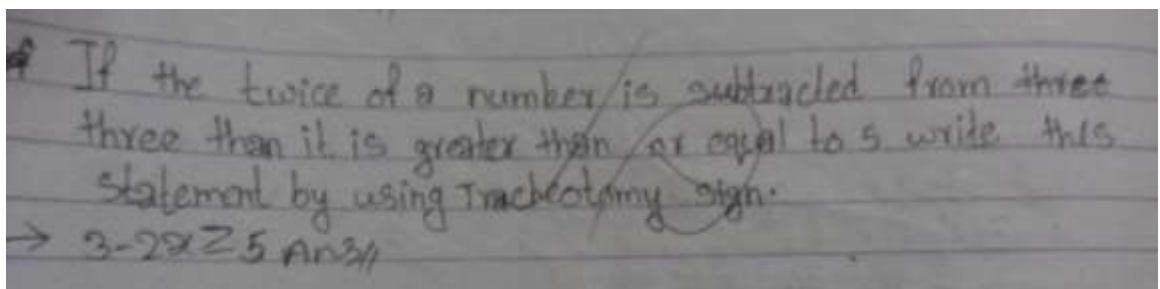 If the twice of a number is subtracted from three
three than it is greater than or equal to 5 write this
statement by using Tracheotomy sign.
→ 3-2x≥5 Ans//